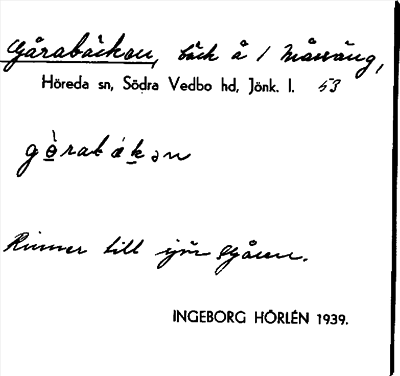 Gårabäcken, bäck å 1 Måsäng,
Höreda sn, Södra Vedbo hd, Jönk. l. 53
Rinner till sjön Gåren.
INGEBORG HÖRLÉN 1939.